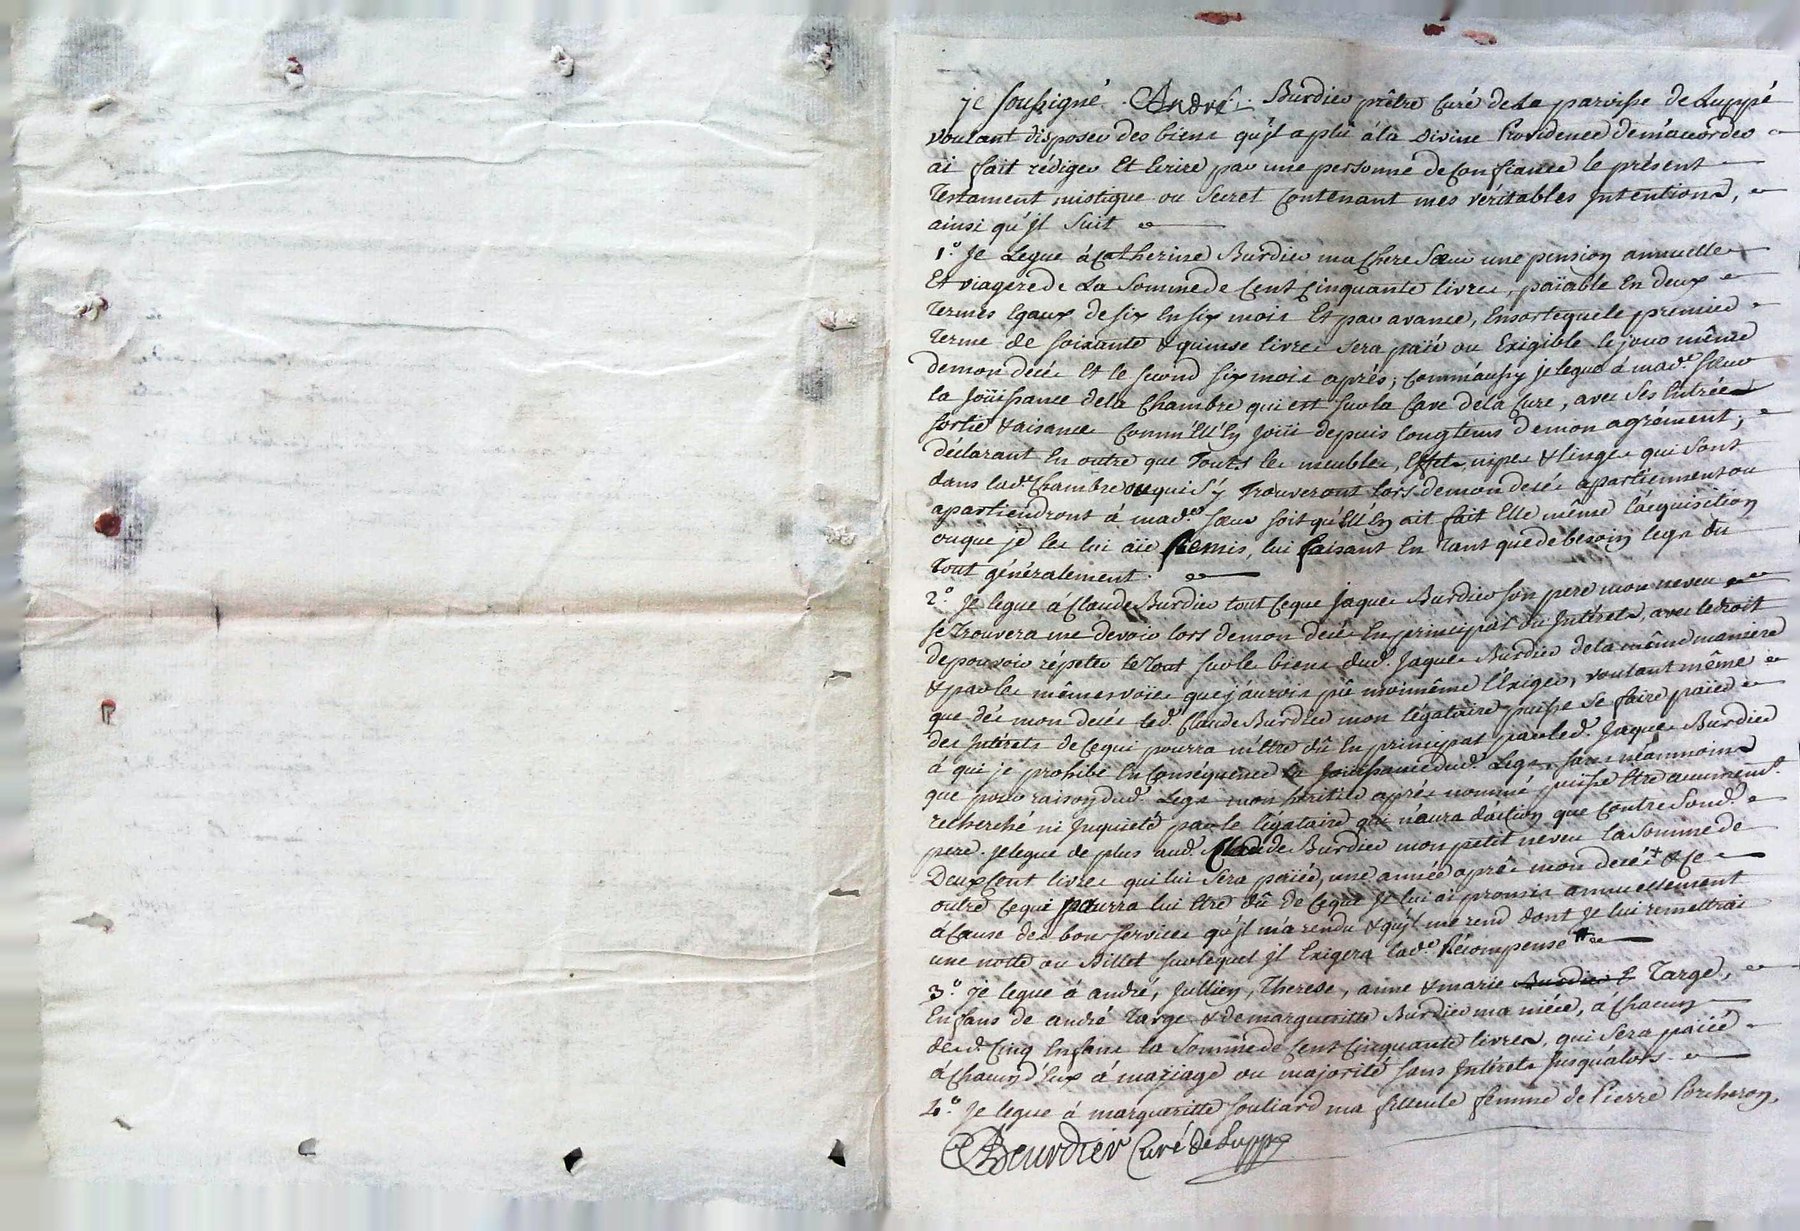 je soussigné André Burdier prêtre curé de la paroisse de Luppé
voulant disposer des biens qu'jl a plû à la divine Providence de m'accorder
ai fait rédiger Et Ecrire par une personne de Confiance le présent
Testament mistique ou Secret Contenant mes véritables jntentions,
ainsi qu'jl suit
1.° Je Legue à Catherine Burdier ma Chere Sœur une pension annuelle
Et viagere de La Somme de Cent Cinquante livres, païable En deux
Termes Egaux de six En six mois Et par avance, Ensorteque le premier
Terme de soixante & quinse livres sera païé ou Exigible le jour même
de mon décés Et le second six mois aprés; Comm'aussy je legue à mad.e sœur
la joüissance de la Chambre qui est sur la Cave de la Cure, avec ses Entrées
sortie & aisances Comm'Ell'En joüi depuis longtems de mon agrément;
déclarant En outre que Touts les meubles, Effets, nipes & linges qui sont
dans lad.e Chambre ou qui s'y Trouveront lors de mon decés apartiennent ou
apartiendront à mad.e sœur soit qu'Ell'En ait fait Elle même l'acquisition
ou que je les lui aïe Remis, lui faisant En Tant que de besoin legs du
Tout généralement.
2.° Je legue à Claude Burdier tout Ceque Jaques Burdier son pere mon neveu
se Trouvera me devoir lors de mon decés En principal ou jntérets, avec le droit
de pouvoir répeter le Tout sur les biens dud. Jaques Burdier de la même maniere
& par les mêmes voïes que j'aurois pû moimême l'Exiger, voulant même
que dés mon decés led. Claude Burdier mon légataire puisse se faire païer
des jntérets de Cequi pourra m'Etre dû En principal par led. Jaques Burdier
à qui je prohibe En Conséquence la joüissance dud. Legs, sans néanmoins
que pour raison dud. Legs mon héritier aprés nommé puisse Etre aucunem.t
recherché ni jnquieté par le légataire qui n'aura d'action que Contre Sond.
pere. je legue de plus aud. Claude Burdier mon petit neveu la Somme de
Deux Cent livres qui lui Sera païée, une année aprés mon decés + & Ce
outre Cequi pourra lui Etre dû de Ceque je lui ai promis annuellement
à Cause des bons services qu'jl m'a rendu & qu'jl me rend dont je lui remettrai
une notte ou Billet sur lequel jl Exigera lad.e Récompense
3.° je legue à andré, jullien, Therese, anne & marie Burdier E Targe,
Enfans de andré Targe & de margueritte Burdier ma niéce, a Chacun
desd. Cinq Enfans la Somme de Cent Cinquante livres, qui Sera païée
à Chacun d'Eux à mariage ou majorité sans jntérets jusqu'alors.
4.° Je legue à margueritte souliard ma filleule femme de Pierre Porcheron,
A Beurdier Curé de Luppé